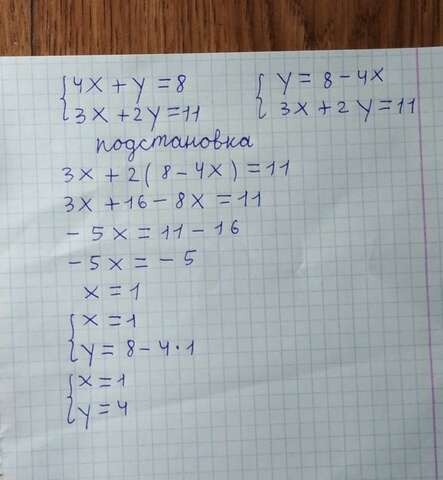 {4x + y = 8
{3x + 2y = 11
{y = 8 - 4x
{3x + 2y = 11
подстановка
3x + 2(8 - 4x) = 11
3x + 16 - 8x = 11
- 5x = 11 - 16
- 5x = - 5
x = 1
{x = 1
{y = 8 - 4 · 1
{x = 1
{y = 4